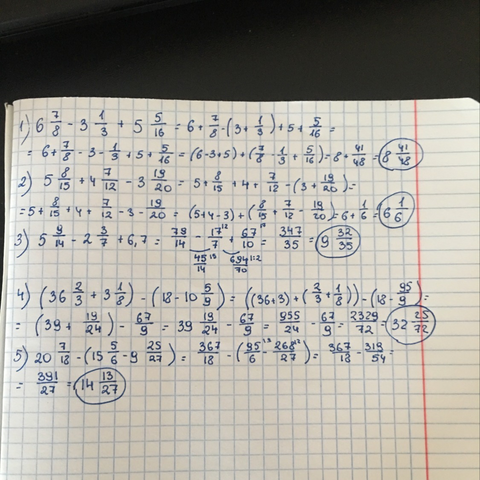 1) 6 7/8 - 3 1/3 + 5 5/16 = 6 + 7/8 - (3 + 1/3) + 5 + 5/16 =
= 6 + 7/8 - 3 - 1/3 + 5 + 5/16 = (6-3+5) + (7/8 - 1/3 + 5/16) = 8 + 41/48 = 8 41/48
2) 5 8/15 + 4 7/12 - 3 19/20 = 5 + 8/15 + 4 + 7/12 - (3 + 19/20) =
= 5 + 8/15 + 4 + 7/12 - 3 - 19/20 = (5+4-3) + (8/15 + 7/12 - 19/20) = 6 + 1/6 = 6 1/6
3) 5 9/14 - 2 3/7 + 6,7 = 79/14 - 17/7 + 67/10 = 347/35 = 9 32/35
45/14 694/70
4) (36 2/3 + 3 1/8) - (18 - 10 5/9) = ((36+3) + (2/3 + 1/8)) - (18 - 95/9) =
= (39 + 19/24) - 67/9 = 39 19/24 - 67/9 = 955/24 - 67/9 = 2329/72 = 32 25/72
5) 20 7/18 - (15 5/6 - 9 25/27) = 367/18 - (95/6 - 268/27) = 367/18 - 319/54 =
= 391/27 = 14 13/27